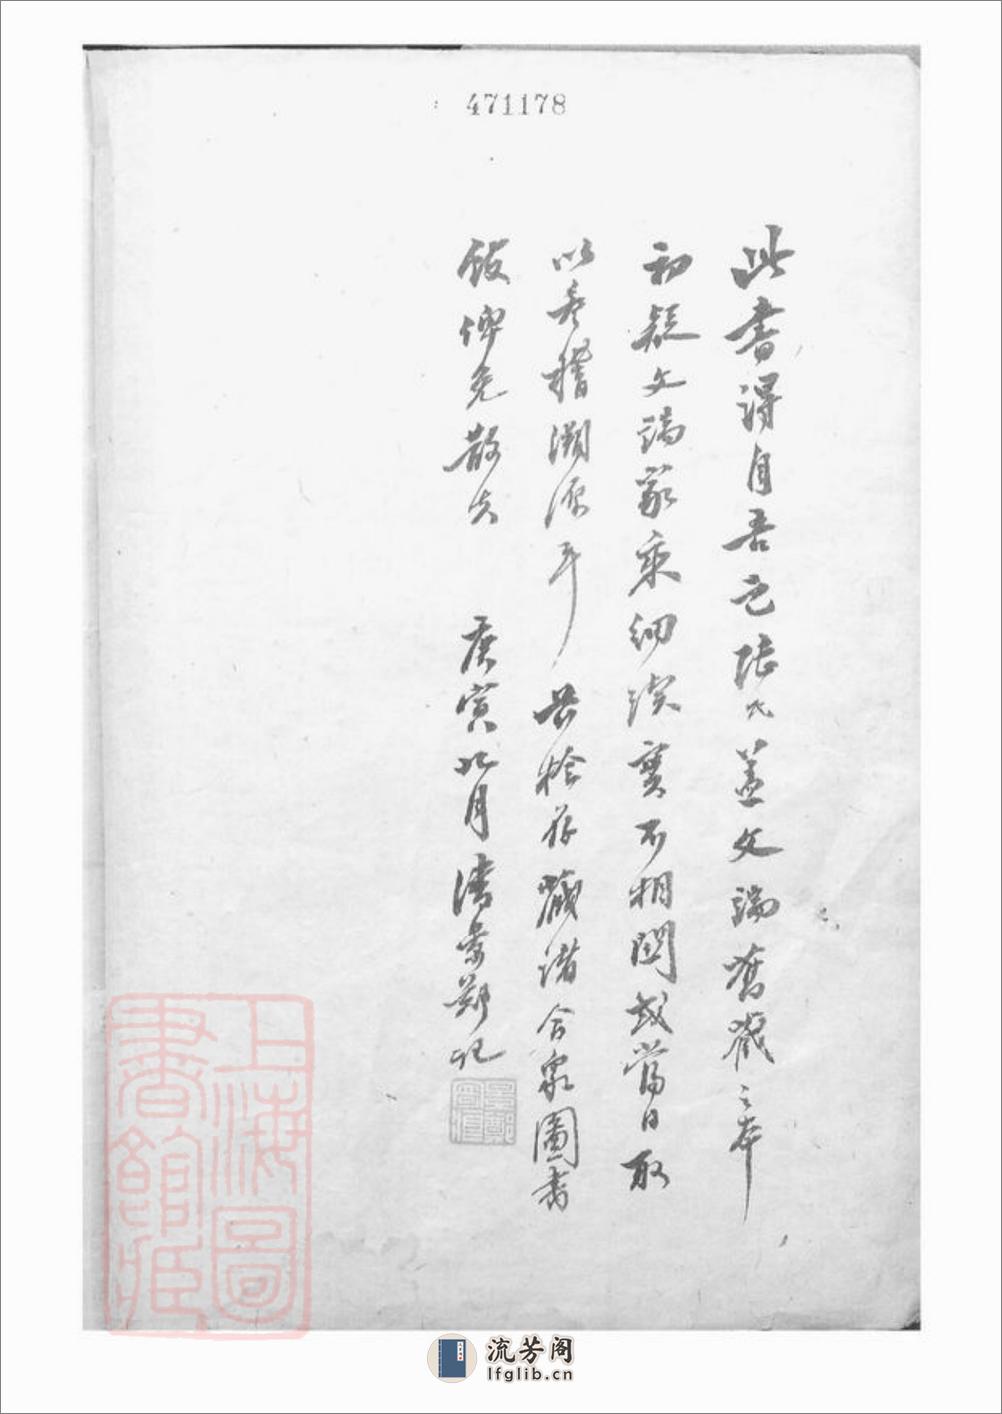 471178
此書得自吾邑陸氏蓋文端舊藏之本
初疑文端家乘細読實不相關或當日取
以參稽溯源耳共拾存藏諸合衆圖書
館俾免散失　庚寅九月潘景鄭記
景鄭
上海圖
書館藏
流芳阁
lfglib.cn